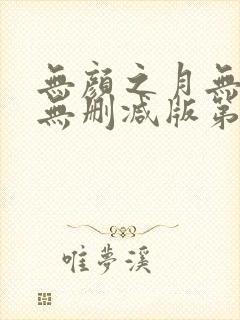 無顔之月無
無刪減版第
唯夢溪